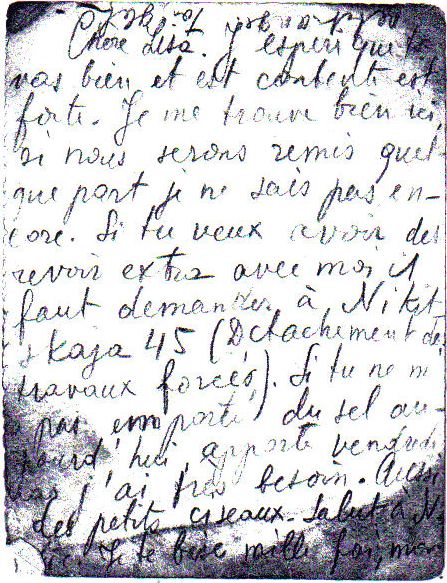 Chère Lisa. J'espère que tu
vas bien et est contente est
forte. Je me trouve bien ici,
si nous serons remis quel-
que part je ne sais pas en-
core. Si tu veux avoir des
revoir extra avec moi il
faut demander à Nikit-
skaja 45 (Détachement de
travaux forcés). Si tu ne m
pas emporté du sel au-
jourd'hui apporte vendredi
j'ai très besoin. Aussi
des petits ciseaux. Salut à N
Je te baise mille fois, mon